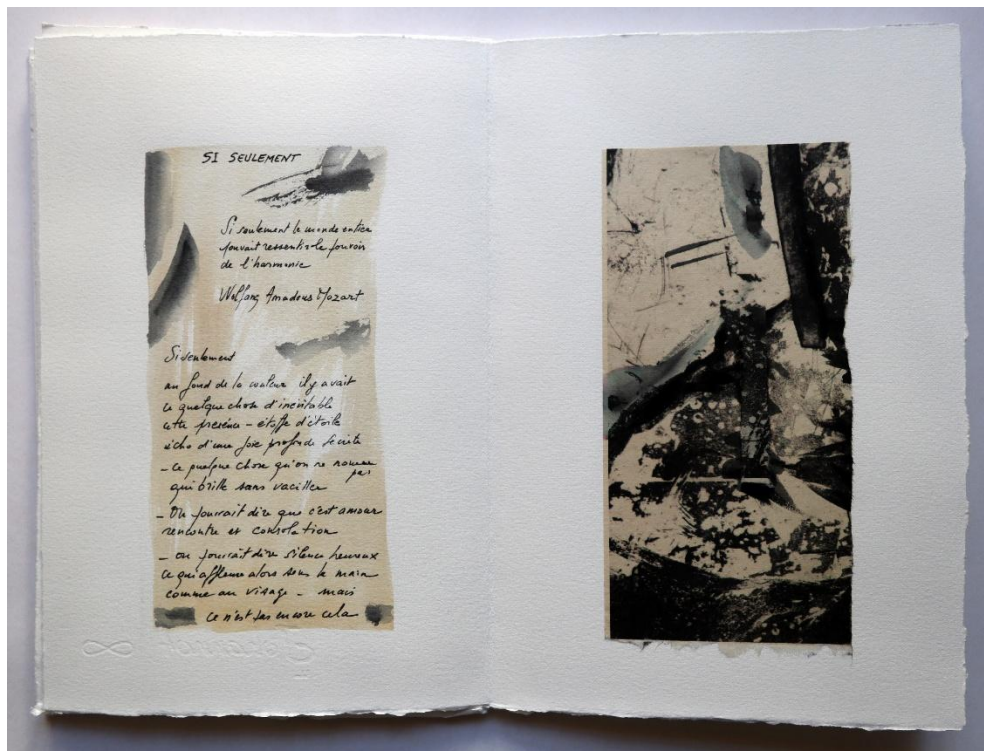 SI SEULEMENT
Si seulement le monde entier
pouvait ressentir le pouvoir
de l'harmonie
Wolfang Amadeus Mozart
Si seulement
au fond de la couleur il y avait
ce quelque chose d'inévitable
cette présence - étoffe d'étoile
écho d'une joie profonde secrète
- ce quelque chose qu'on ne nomme
pas
qui brille sans vaciller
- On pourrait dire que c'est amour
rencontre et consolation
- on pourrait dire silence heureux
ce qui affleure alors sous la main
comme au visage - mais
ce n'est pas encore cela